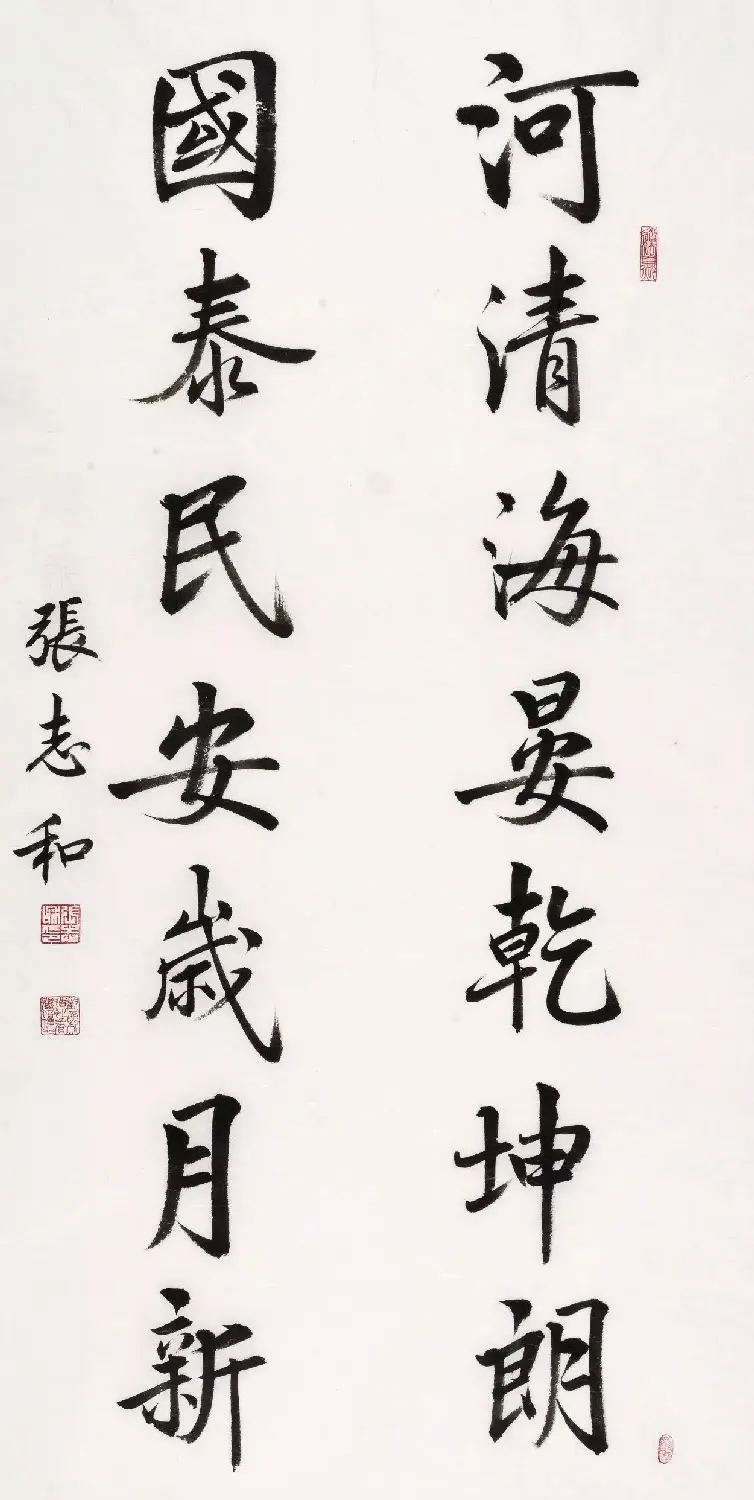 河清海晏乾坤朗
國泰民安歳月新
張志和